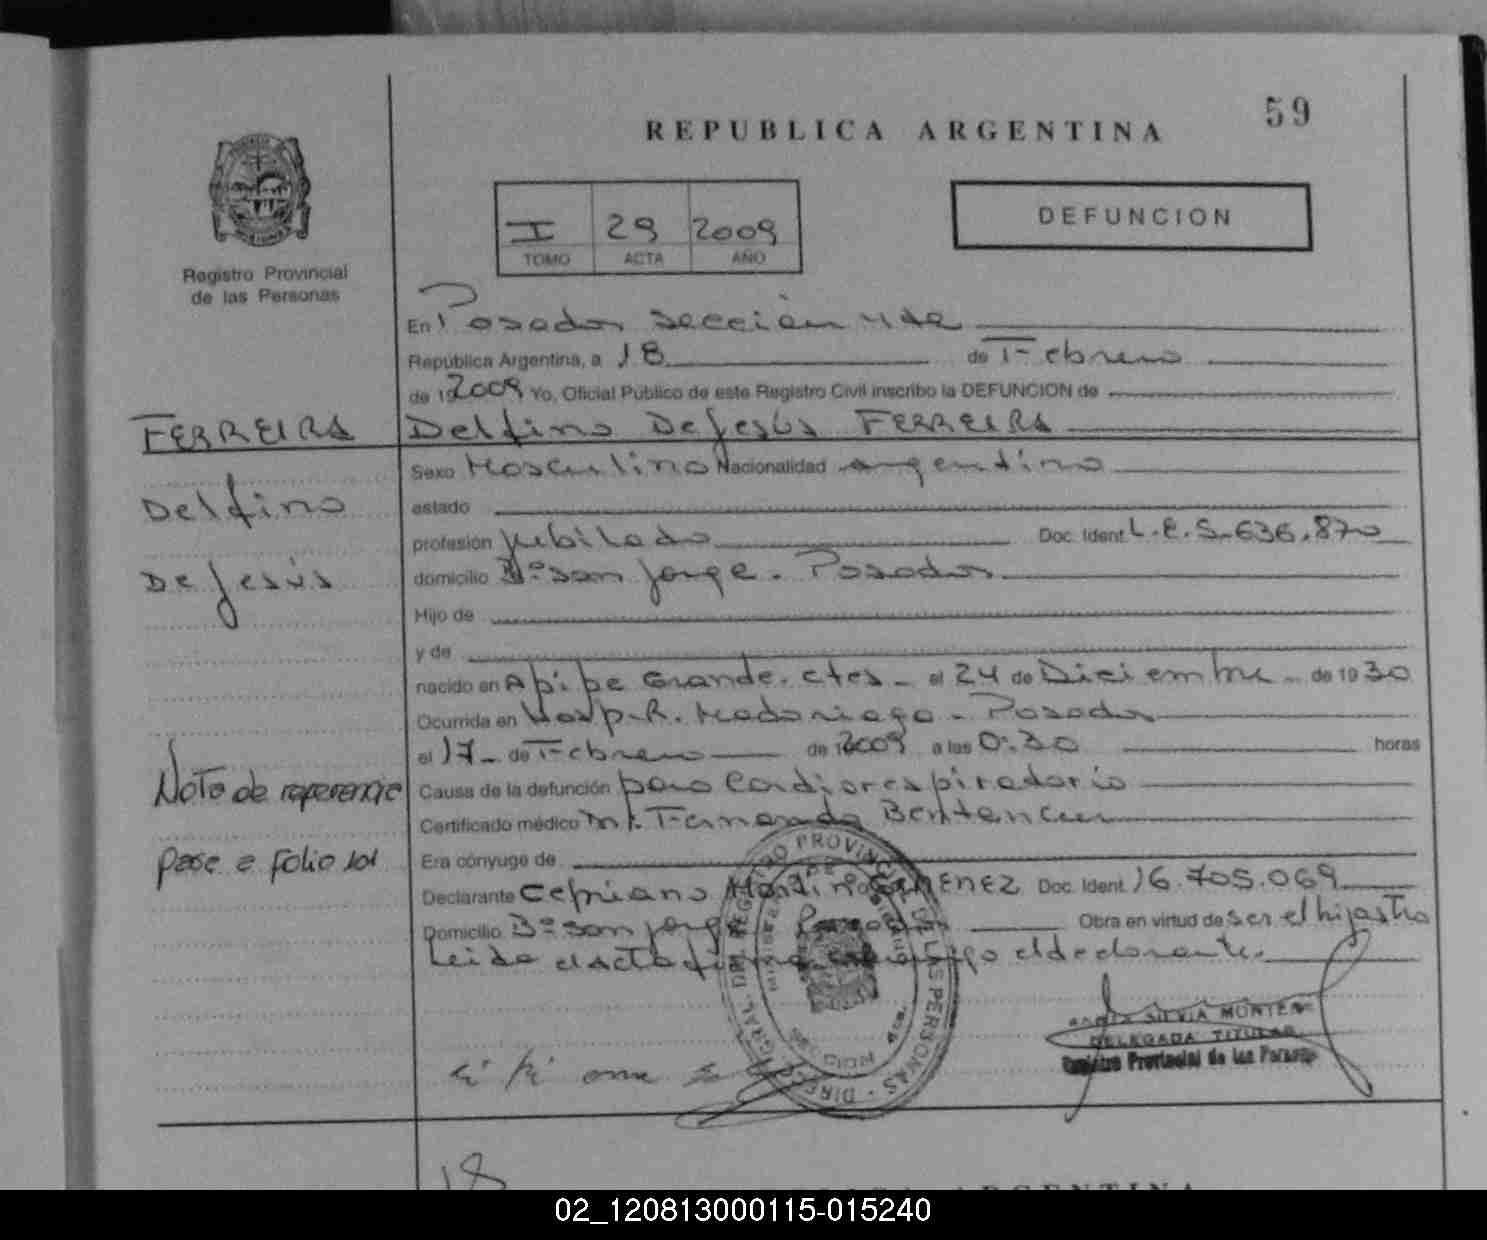 59
REPUBLICA ARGENTINA
I 29 2009
TOMO ACTA AÑO
DEFUNCION
Registro Provincial
de las Personas
En Posadas sección 4ta
República Argentina, a 18 de Febrero
de 19 2009 Yo, Oficial Público de este Registro Civil inscribo la DEFUNCION de
FERREIRA
Delfino De Jesús
Delfino De Jesús FERREIRA
Sexo Masculino Nacionalidad argentino
estado
profesión jubilado Doc. Ident. L.E. 5.636.870
domicilio Bº san Jorge - Posadas
Hijo de
y de
nacido en Apipe Grande. ctes - el 24 de Diciembre - de 19 30
Ocurrida en Hosp. R. Madariaga - Posadas
el 17 - de Febrero de 2009 a las 0:30 horas
Nota de referencia
pase a folio 101
Causa de la defunción paro Cardiorespiratorio
Certificado médico Dr. Fernando Bentancur
Era cónyuge de
Declarante Cepriano Martin GIMENEZ Doc. Ident. 16.705.069
Domicilio Bº san Jorge Posadas Obra en virtud de ser el hijastro
Leida el acta firma conmigo el declarante.
SILVIA MONTE
DELEGADA TITULAR
Registro Provincial de las Personas
18
ARGENTINA
02_120813000115-015240